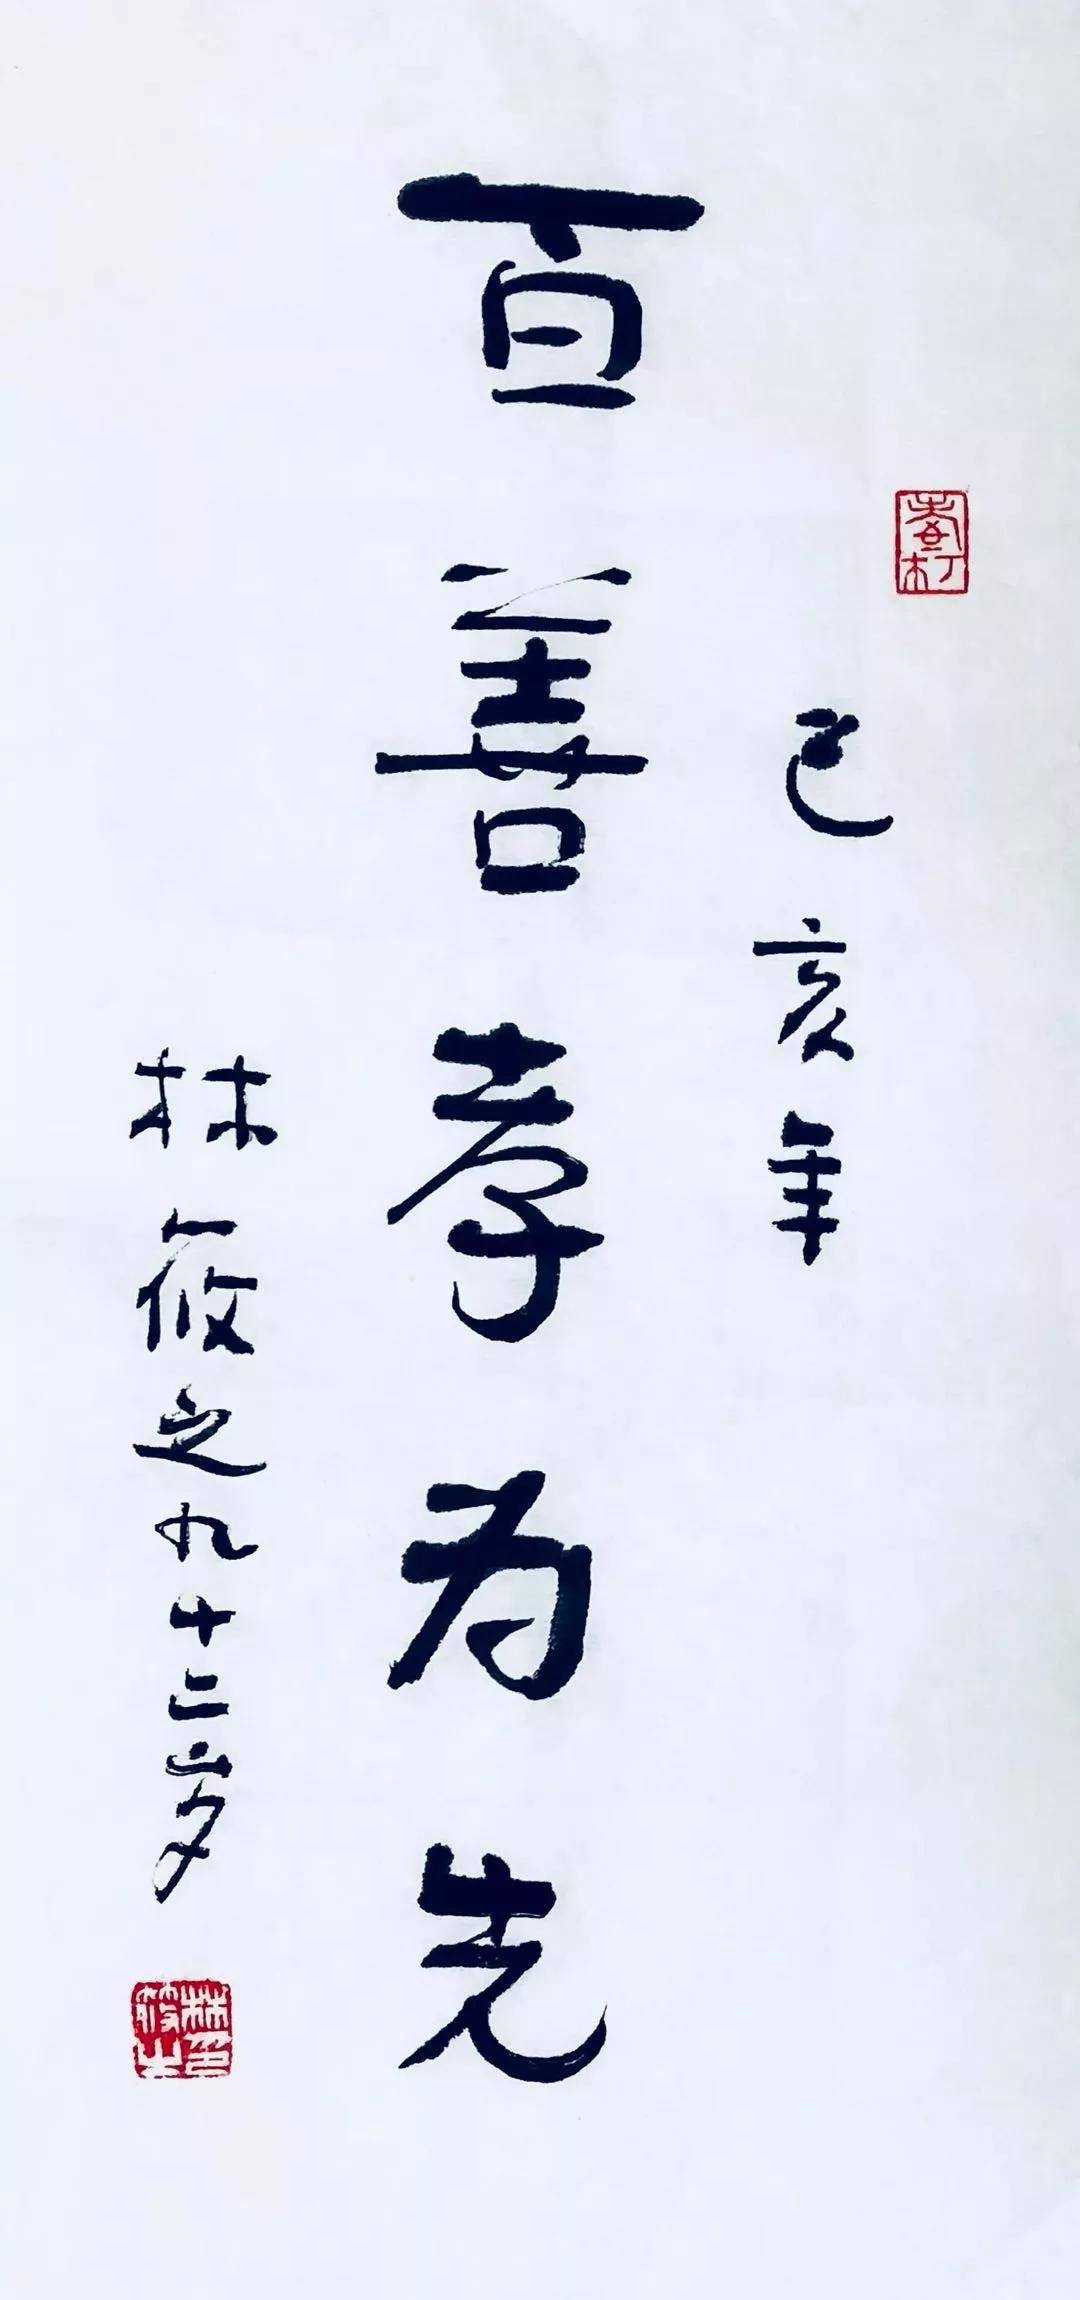 己亥年
百善孝为先
林筱之九十二岁